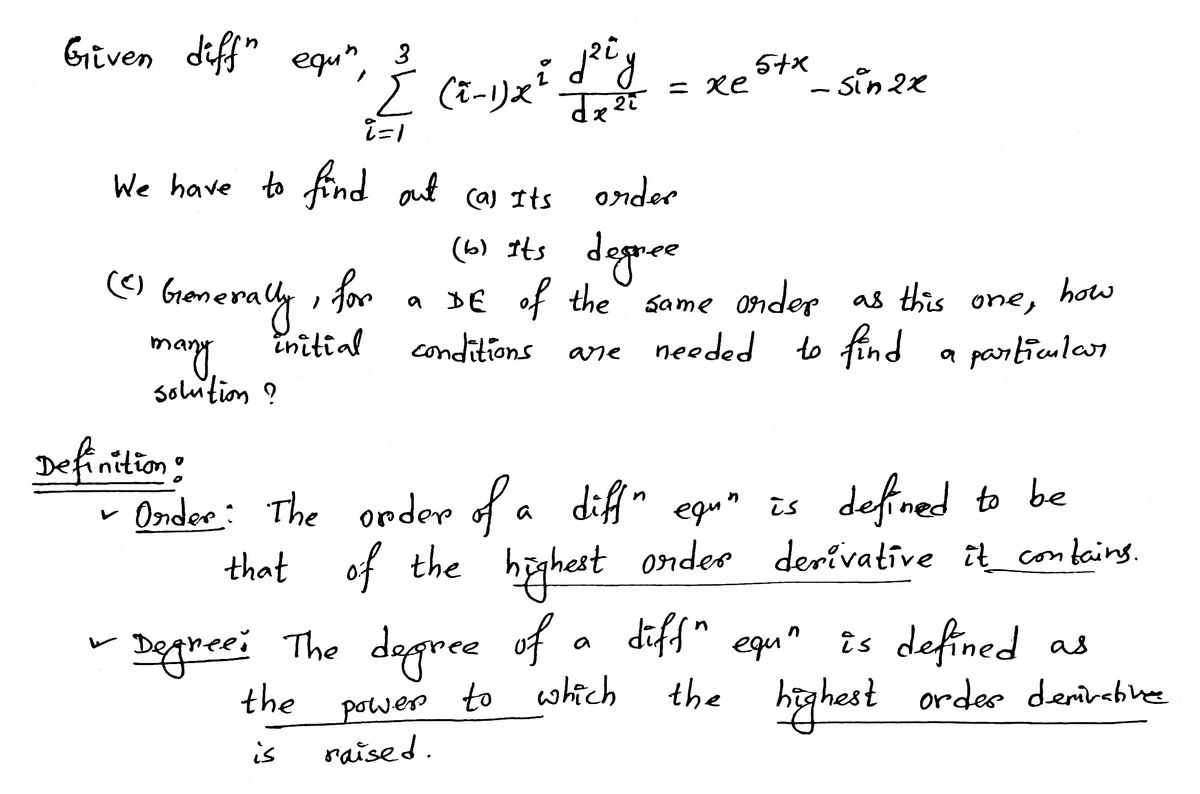 Given diffⁿ equⁿ, ∑_{i=1}^{3} (i-1)x^i d^{2i}y/dx^{2i} = xe^{5+x} - sin2x
We have to find out (a) Its order
(b) Its degree
(c) Generally, for a DE of the same order as this one, how
many initial conditions are needed to find a particular
solution?
Definition:
✓ Order: The order of a diffⁿ equⁿ is defined to be
that of the highest order derivative it contains.
✓ Degree: The degree of a diffⁿ equⁿ is defined as
the power to which the highest order derivative
is raised.